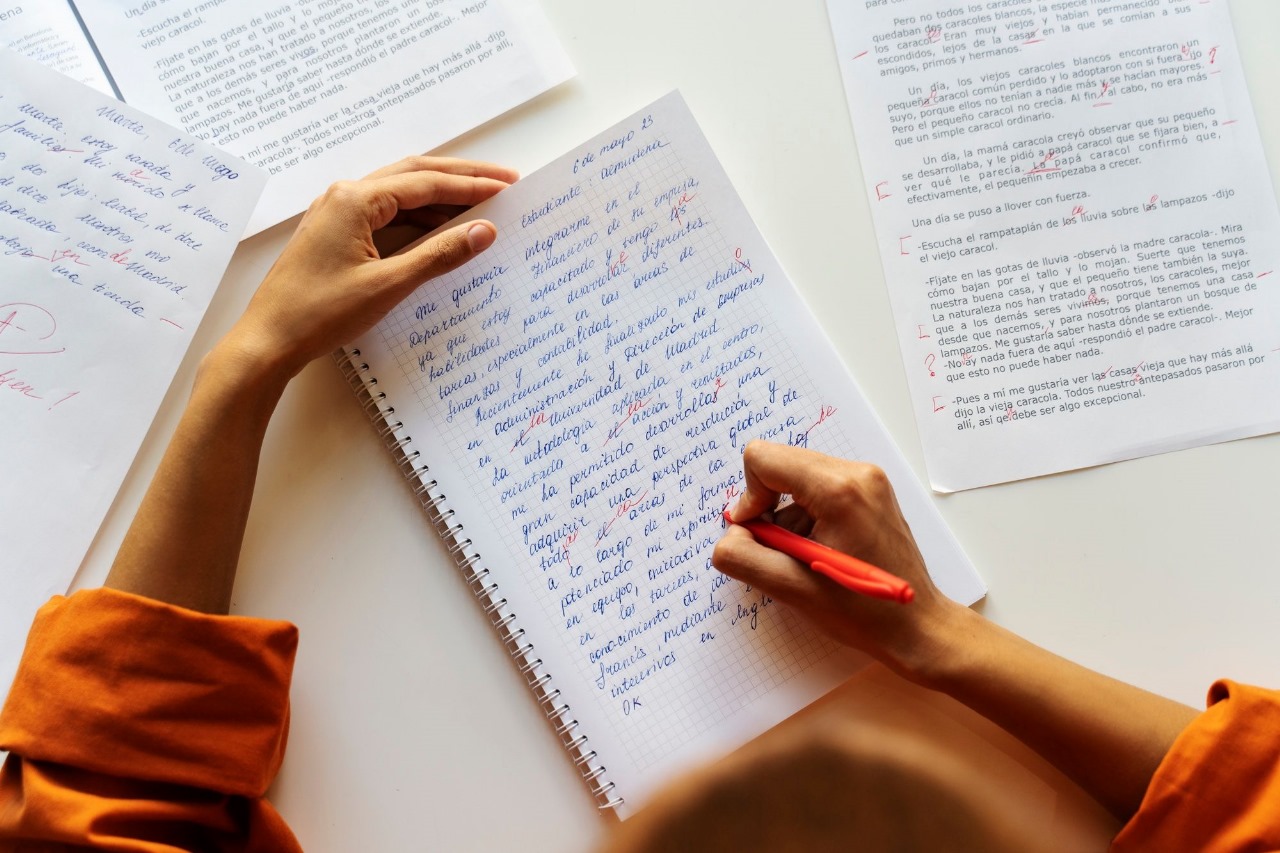 ena
Un día se
-Escucha el rampata
viejo caracol.
-Fíjate en las gotas de lluvia -obs
cómo bajan por el tallo y lo mojan
nuestra buena casa, y que el pequeño tie
La naturaleza nos han tratado a nosotros, los
que a los demás seres vivos, porque tenemos un
desde que nacemos, y para nosotros plantaron un bos
lampazos. Me gustarja saber hasta dónde se extiende.
-No hay nada fuera de aquí -respondió el padre caracol-. Mejor
que esto no puede haber nada.
mí me gustaría ver la casa vieja que hay más allá -dijo
caracola-. Todos nuestros antepasados pasaron por allí,
be ser algo excepcional.
Marta, 6 de mayo
marta, estoy casada y
familia. Mi marido se llama
a
dos hijos: Isabel, de doce
en de
una tienda.
A-
6 de mayo 23
Estudiante: almudena
Me gustaría integrarme en el
Departamento financiero de su empresa,
ya que estoy capacitado y tengo las
habilidades para desarrollar diferentes
tareas, especialmente en las áreas de
finanzas y contabilidad.
Recientemente he finalizado mis estudios
en administración y dirección de empresas
en la Universidad de Madrid
La metodología aplicada en el centro,
orientada a el acción y resultados,
la
me ha permitido desarrollar una
gran capacidad de resolución y
adquirir una perspectiva global de
todo el áreas de la empresa
la
a lo largo de mi formac
potenciado mi espíritu
en equipo, iniciativa
en las tareas, a
conocimiento de idi
francés, mediante
intensivos en ingl
OK
Pero no todos los caracoles
quedaban dos caracoles blancos, la especie más
los caracol eran muy viejos y habían permanecido
escondidos, lejos de la casas en la que se comían a sus
amigos, primos y hermanos.
Un día, los viejos caracoles blancos encontraron un
pequeña caracol común perdido y lo adoptaron con si fuera ijo
suyo, porque ellos no tenían a nadie más y se hacían mayores.
Pero el pequeño caracol no crecía. Al fin y al cabo, no era más
que un simple caracol ordinario.
Un día, la mamá caracola creyó observar que su pequeño
se desarrollaba, y le pidió a papá caracol que se fijara bien, a
ver qué le parecía. La papá caracol confirmó que,
efectivamente, el pequeñín empezaba a crecer.
Una día se puso a llover con fuerza.
-Escucha el rampataplán de los lluvia sobre las lampazos -dijo
el viejo caracol.
-Fíjate en las gotas de lluvia -observó la madre caracola-. Mira
cómo bajan por el tallo y lo mojan. Suerte que tenemos
nuestra buena casa, y que el pequeño tiene también la suya.
La naturaleza nos han tratado a nosotros, los caracoles, mejor
que a los demás seres vivimos, porque tenemos una casa
desde que nacemos, y para nosotros plantaron un bosque de
lampazos. Me gustaría saber hasta dónde se extiende.
? -No ay nada fuera de aquí -respondió el padre caracol-. Mejor
que esto no puede haber nada.
-Pues a mí me gustaría ver las casas vieja que hay más allá
dijo la vieja caracola. Todos nuestro antepasados pasaron por
allí, así qe debe ser algo excepcional.